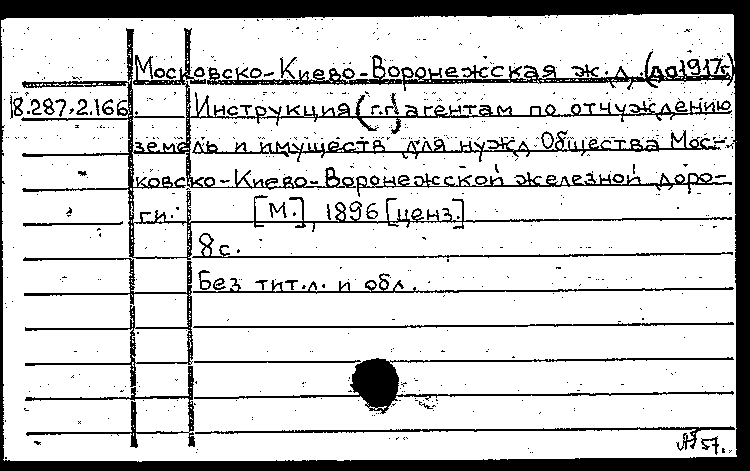 Московско-Киево-Воронежская ж.д. (до 1917г.)
18.287.2.166. Инструкция (г.г.) агентам по отчуждению
земель и имуществ для нужд Общества Мос-
ковско-Киево-Воронежской железной доро-
ги. [М.], 1896 [ценз.]
8 с.
Без тит.л. и обл.
57.